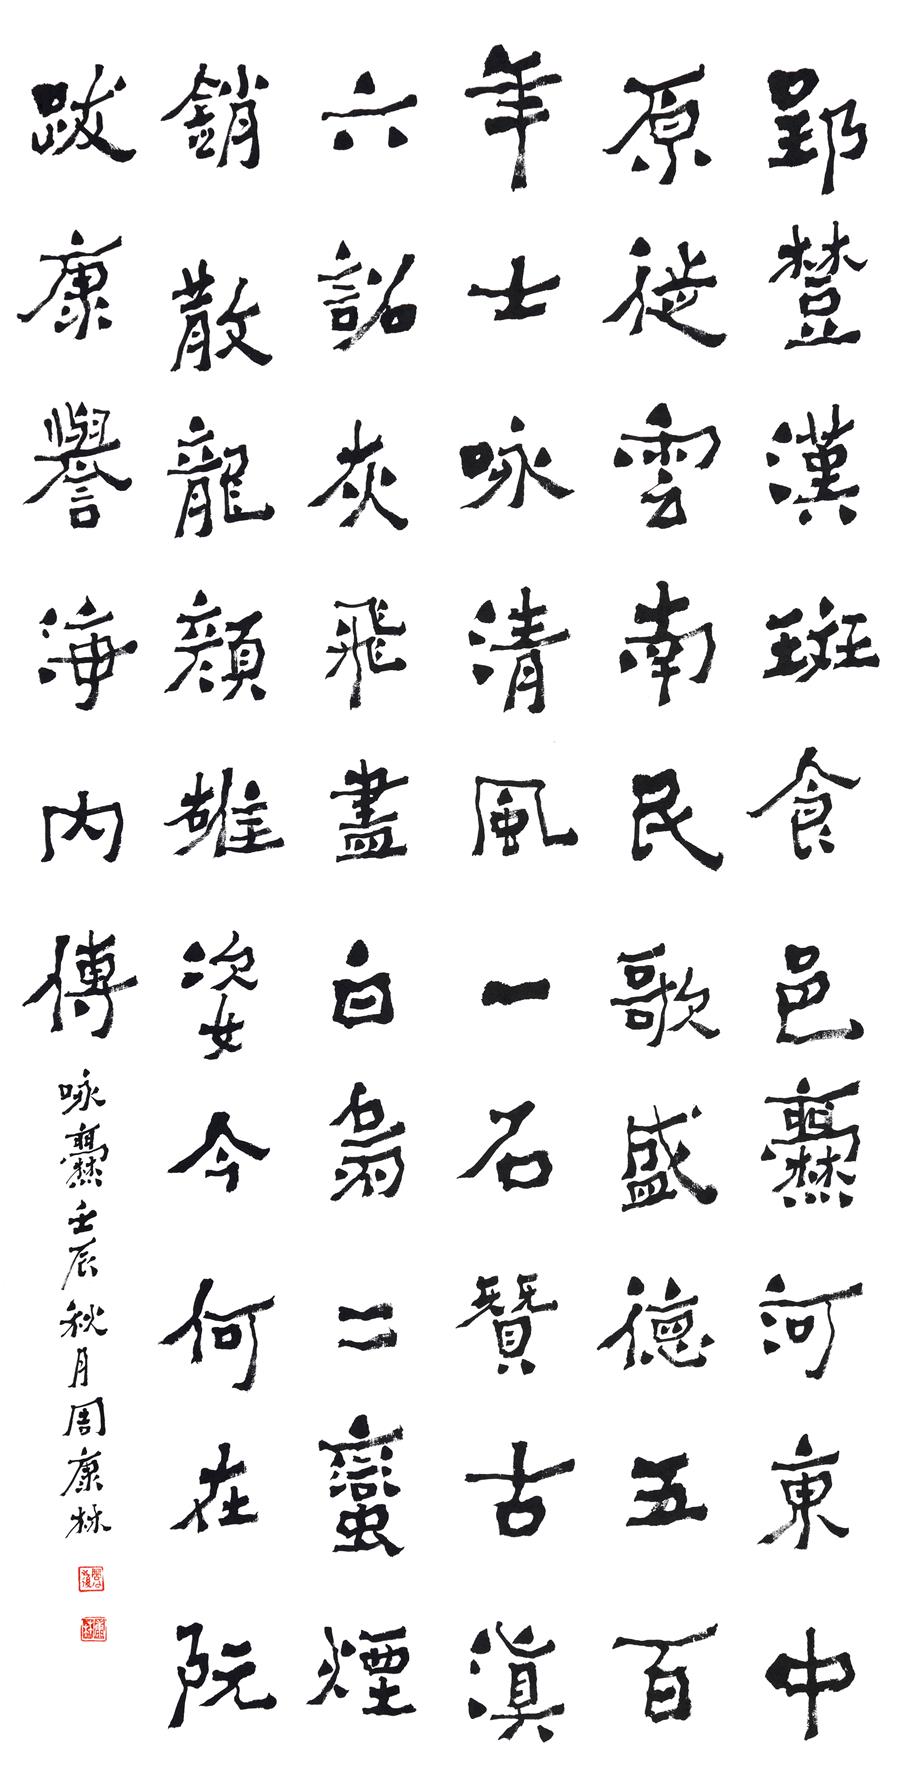 郢楚漢斑食邑爨河東中
原徙雲南民歌盛德五百
年士咏清風一名贊古滇
六詔灰飛盡白烏二蠻煙
銷散龍顏雄姿今何在阮
跋康譽海内傳
咏爨壬辰秋月周康林